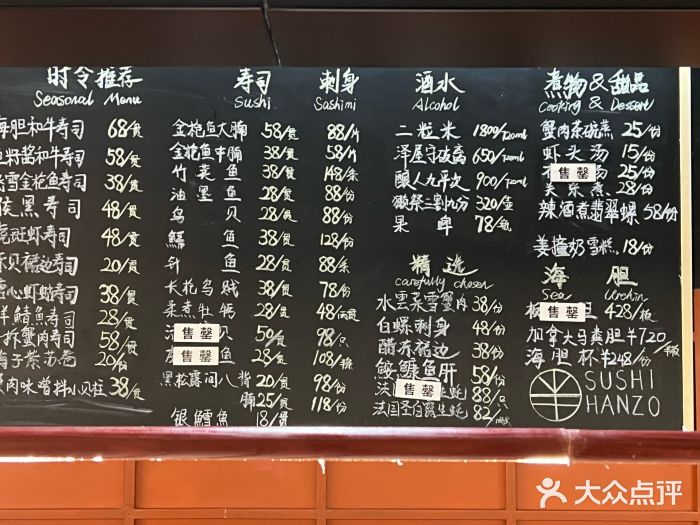 时令推荐
Seasonal Menu
海胆和牛寿司 68/贯
酱和牛寿司 58/贯
雪金枪鱼寿司 38/贯
黑寿司 48/贯
斑虾寿司 48/贯
贝裙边寿司 20/贯
心虾蛄寿司 38/贯
鲭鱼寿司 28/贯
杯蟹肉寿司 58/贯
梅子紫苏卷 20/份
肉味噌拌小贝柱 38/贯
寿司 刺身
Sushi Sashimi
金枪鱼大腩 58/贯 88/片
金枪鱼中腩 38/贯 58/片
竹荚鱼 38/贯 148/条
油墨鱼 28/贯 88/份
鸟贝 28/贯 88/份
鳕鱼 38/贯 128/份
针鱼 28/贯 88/条
长枪乌贼 38/贯 78/份
柔煮牡蛎 28/贯 48/两
售罄 贝 50/贯 98/只
售罄 鱼 28/贯 108/
黑松露河八背 20/贯 98/份
腩 25/贯 118/份
银鳕鱼 18/贯
酒水
Alcohol
二粒米 1800/720ml
泽屋守破离 650/720ml
酿人九平次 900/720ml
獭祭三割九分 320/壶
果啤 78/瓶
精选
Carefully chosen
水雲菜雪蟹肉 38/份
白螺刺身 48/份
醋冻裙边 38/份
鮟鱇鱼肝 58/份
法 售罄 生蚝 88/只
法国圣白露生蚝 82/两
煮物&甜品
Cooking & Dessert
蟹肉茶碗蒸 25/份
虾头汤 15/份
售罄 汤 25/份
关东煮 28/份
辣酒煮翡翠螺 58/份
姜撞奶雪糕 18/份
海胆
Sea Urchin
售罄 胆 428/板
加拿大马粪胆半720/板
海胆杯半248/份
SUSHI
HANZO
大众点评